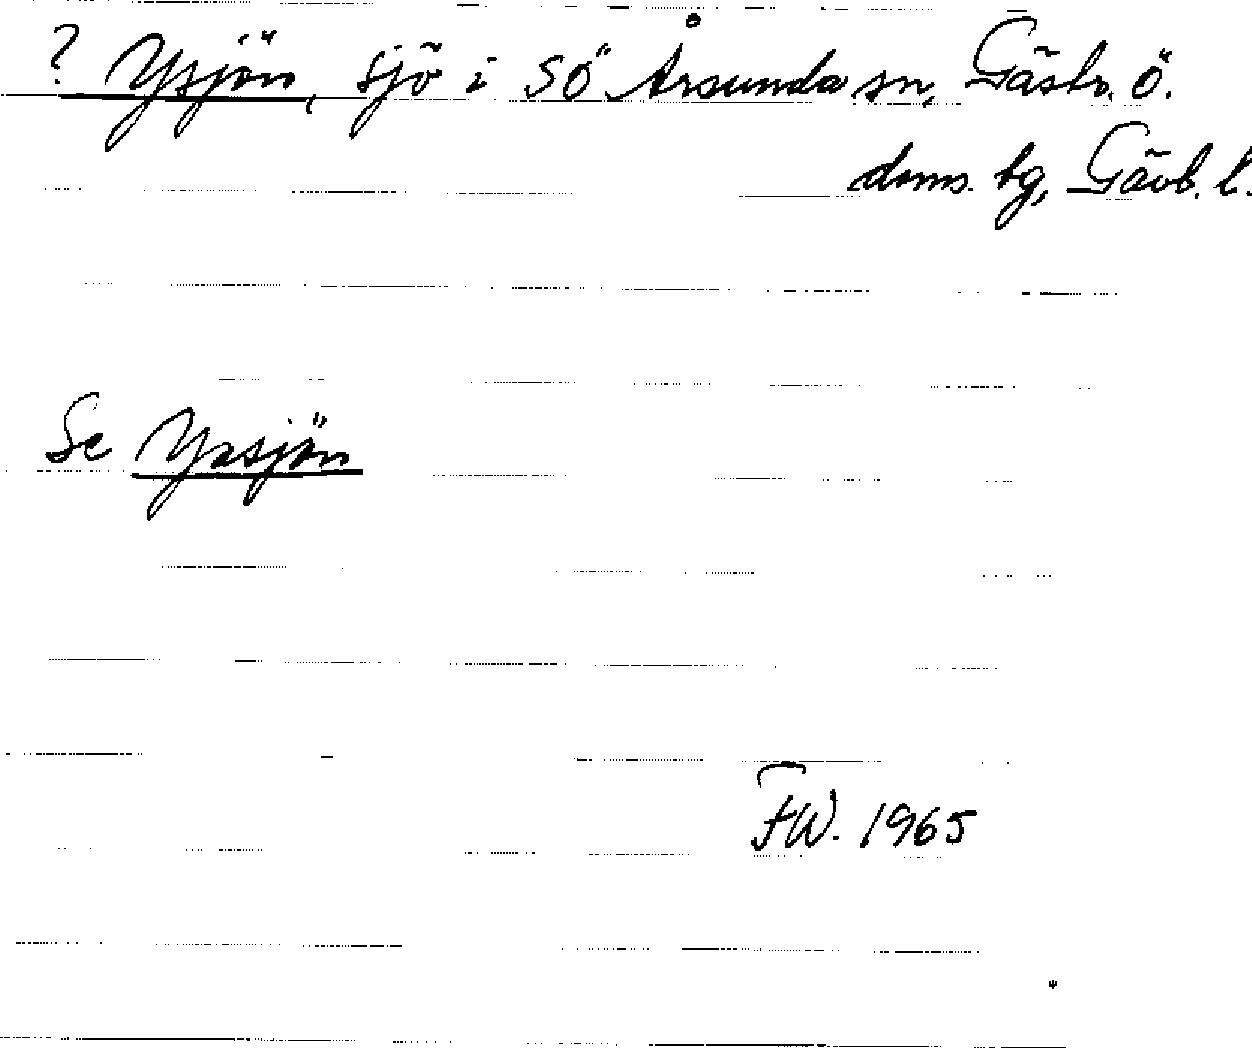 ? Ysjön, sjö i SÖ Årsunda sn, Gästr. ö.
doms. tg, Gävb. l.
Se Yxsjön
FW. 1965